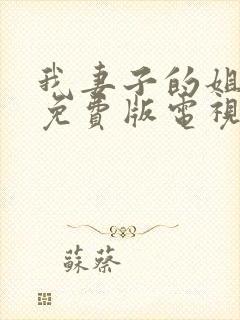 我妻子的姐
免費版電視
蘇蔡